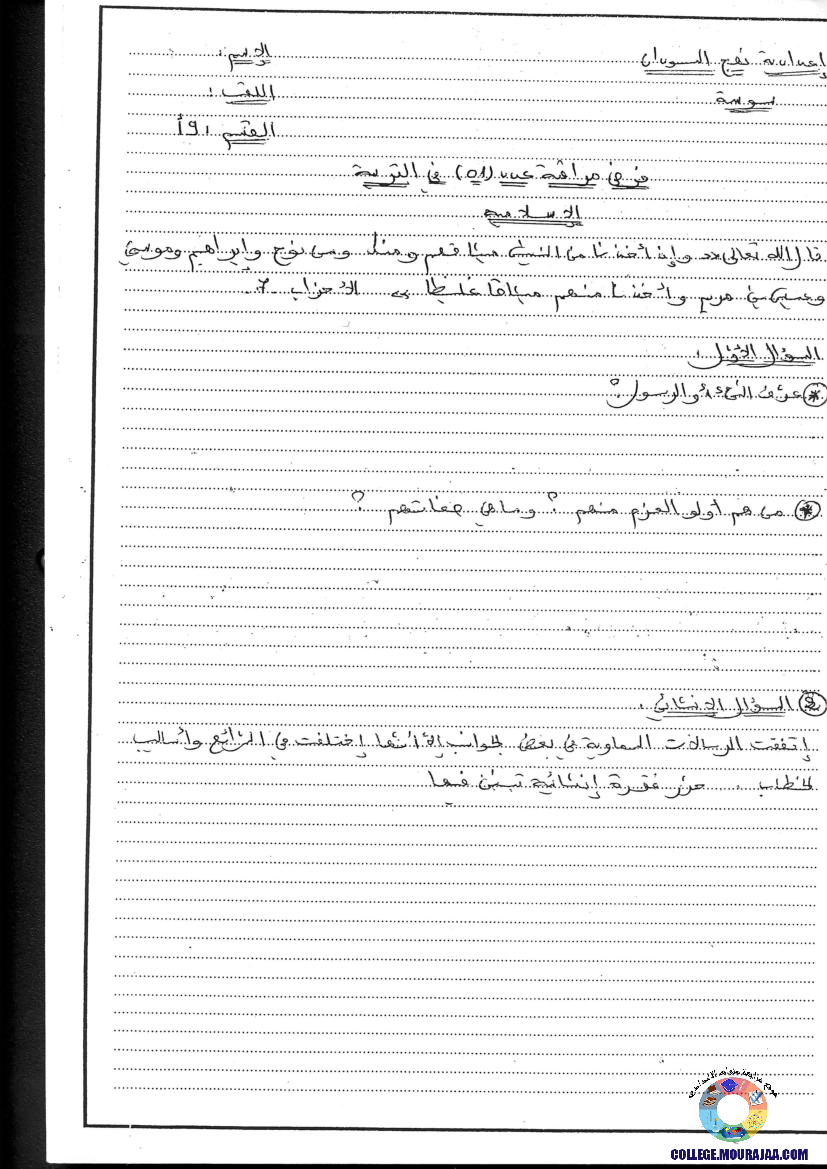 إعدادية نهج السودان
سوسة
الإسم :
اللقب :
القسم : 9أ
فرض مراقبة عدد (01) في التربية
الإسلامية
قال الله تعالى « وإذ أخذنا من النبيين ميثاقهم ومنك ومن نوح وإبراهيم وموسى
وعيسى بن مريم وأخذنا منهم ميثاقا غليظا » الأحزاب 7.
السؤال الأول :
* عرف النبيء والرسول؟
* من هم أولو العزم منهم ؟ وماهي صفاتهم ؟
السؤال الإنشائي :
إتفقت الرسالات السماوية في بعض الجوانب إلا أنها إختلفت في الشرائع وأساليب
الخطاب . حرر فقرة إنشائية تبين فيها
موقع مراجعة
COLLEGE.MOURAJAA.COM